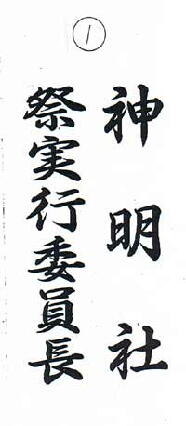 ①
神明社
祭実行委員長